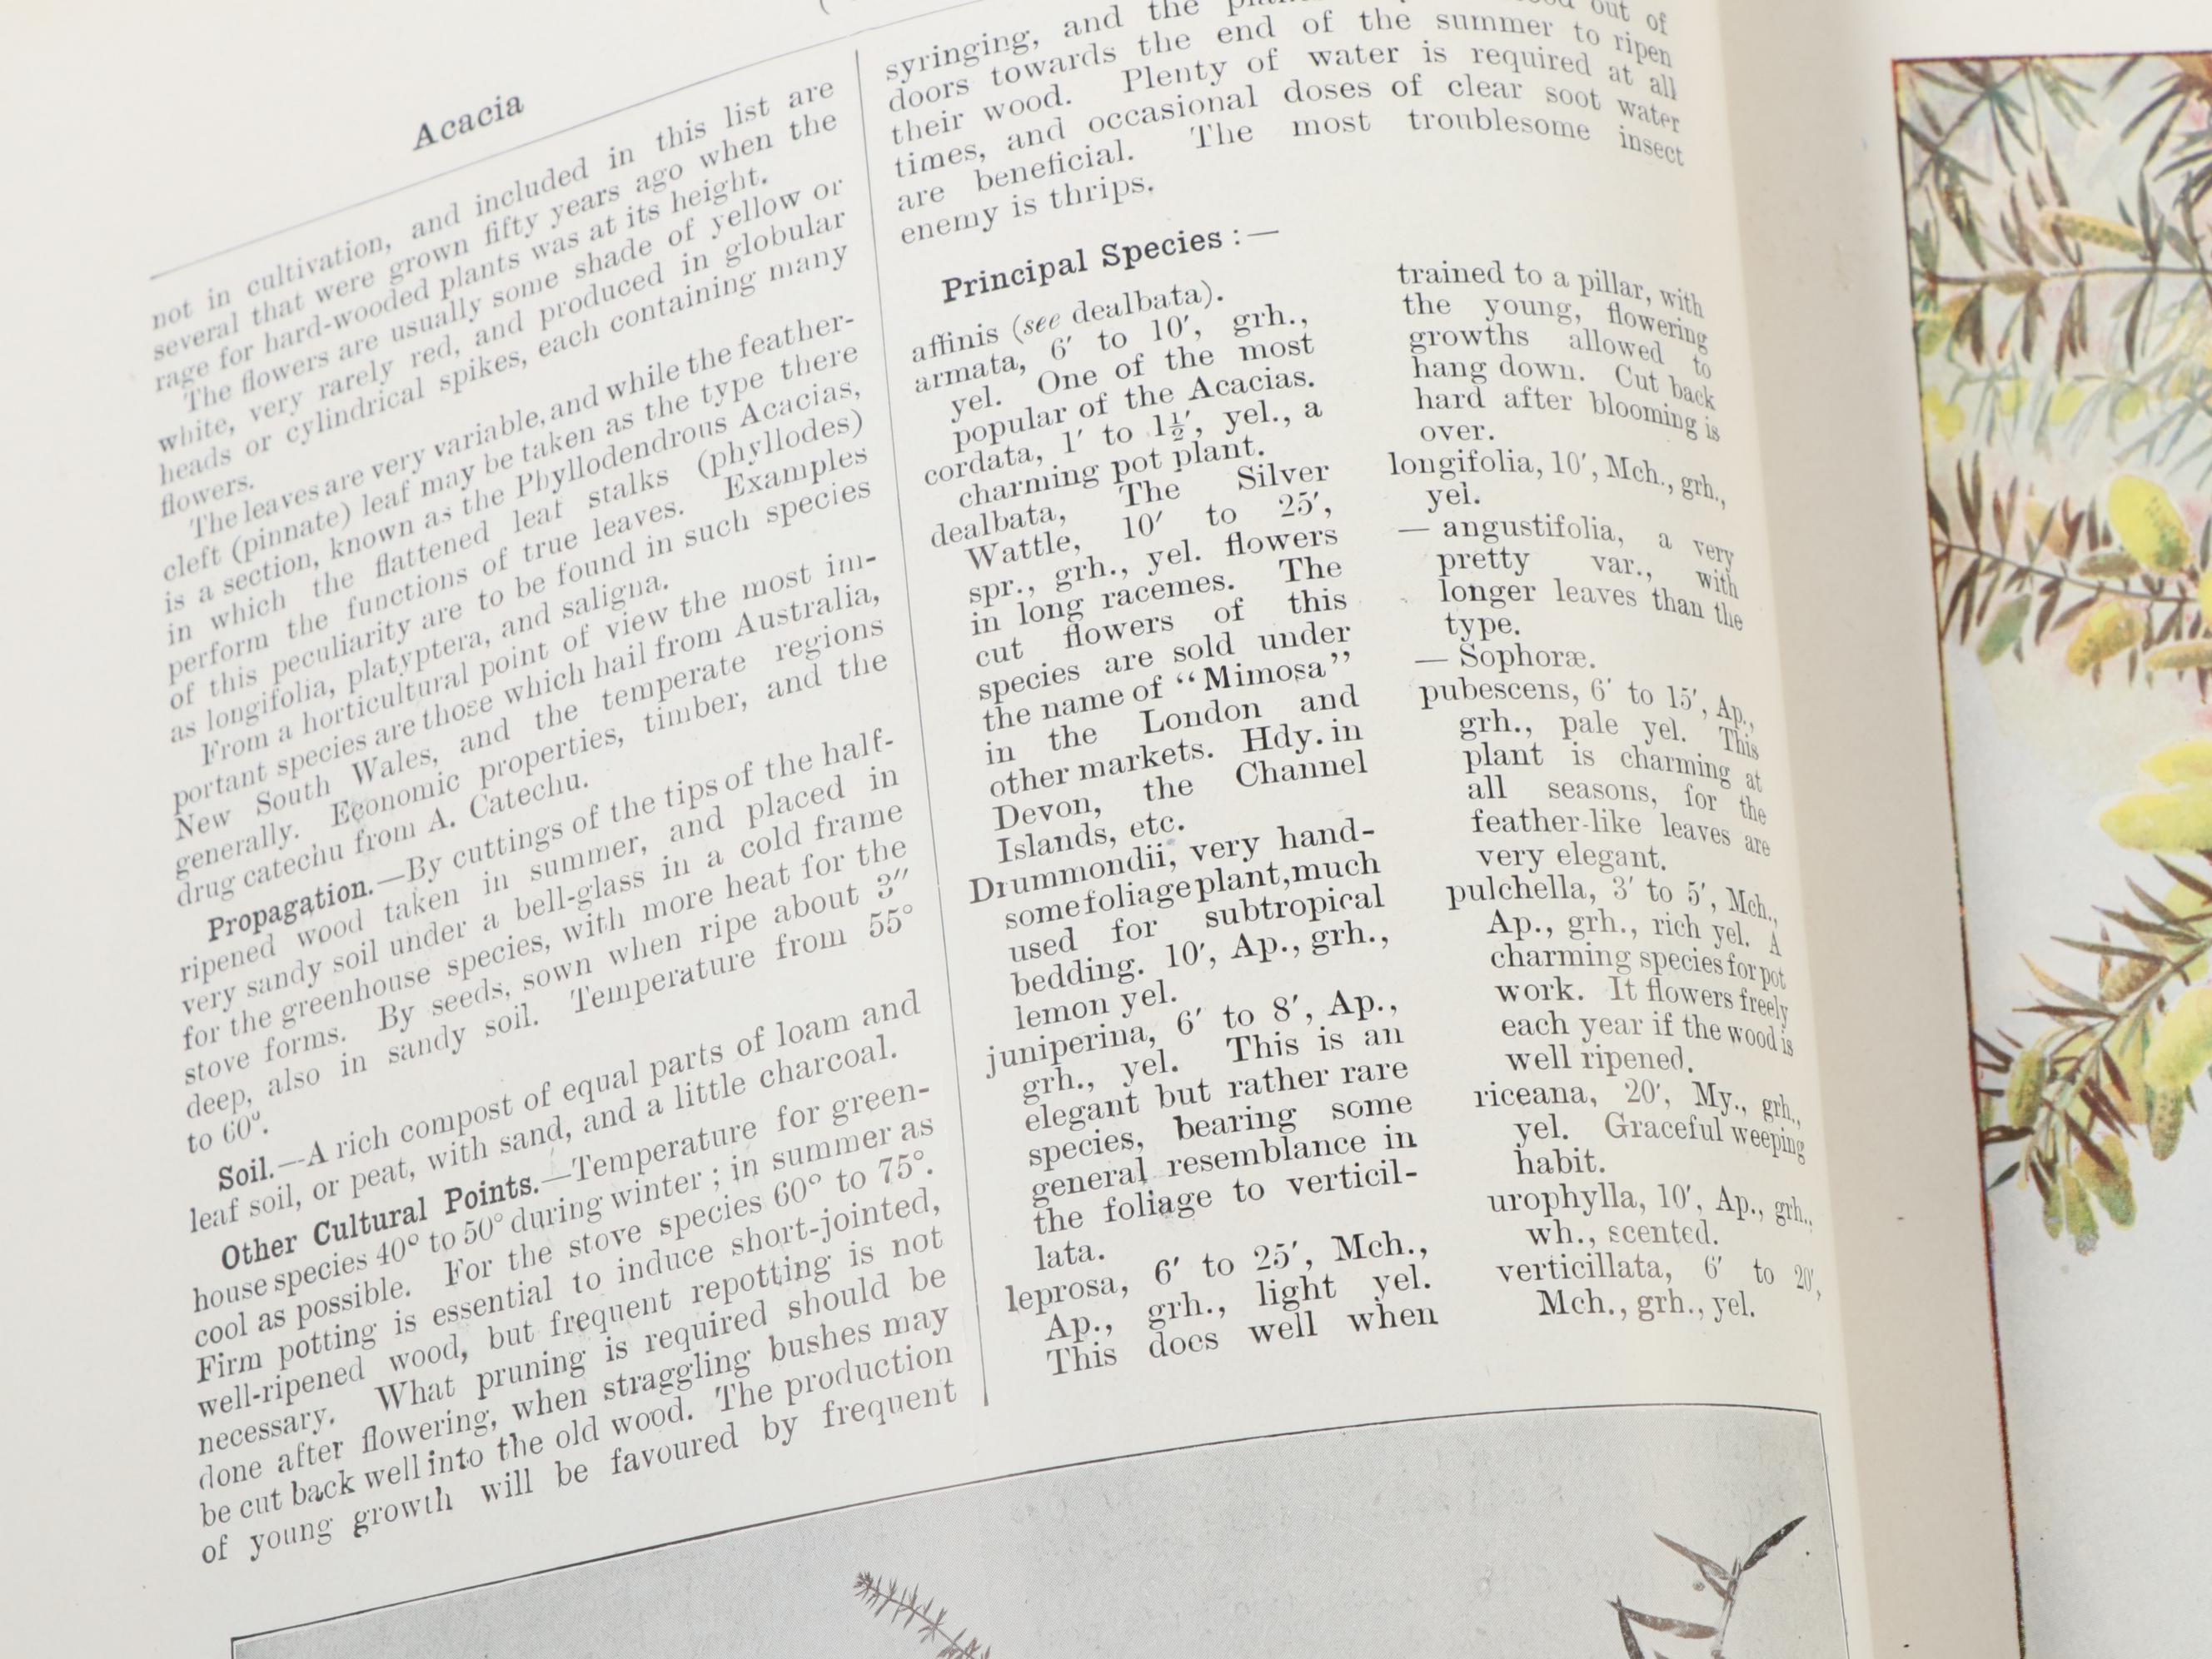 Acacia
not in cultivation, and included in this list are
several that were grown fifty years ago when the
rage for hard-wooded plants was at its height.
The flowers are usually some shade of yellow or
white, very rarely red, and produced in globular
heads or cylindrical spikes, each containing many
flowers.
The leaves are very variable, and while the feather-
cleft (pinnate) leaf may be taken as the type there
is a section, known as the Phyllodendrous Acacias,
in which the flattened leaf stalks (phyllodes)
perform the functions of true leaves. Examples
of this peculiarity are to be found in such species
as longifolia, platyptera, and saligna.
From a horticultural point of view the most im-
portant species are those which hail from Australia,
New South Wales, and the temperate regions
generally. Economic properties, timber, and the
drug catechu from A. Catechu.
Propagation.—By cuttings of the tips of the half-
ripened wood taken in summer, and placed in
very sandy soil under a bell-glass in a cold frame
for the greenhouse species, with more heat for the
stove forms. By seeds, sown when ripe about 3″
deep, also in sandy soil. Temperature from 55°
to 60°.
Soil.—A rich compost of equal parts of loam and
leaf soil, or peat, with sand, and a little charcoal.
Other Cultural Points.—Temperature for green-
house species 40° to 50° during winter; in summer as
cool as possible. For the stove species 60° to 75°.
Firm potting is essential to induce short-jointed,
well-ripened wood, but frequent repotting is not
necessary. What pruning is required should be
done after flowering, when straggling bushes may
be cut back well into the old wood. The production
of young growth will be favoured by frequent
syringing, and the out of
doors towards the end of the summer to ripen
their wood. Plenty of water is required at all
times, and occasional doses of clear soot water
are beneficial. The most troublesome insect
enemy is thrips.
Principal Species:—
affinis (see dealbata).
armata, 6′ to 10′, grh.,
yel. One of the most
popular of the Acacias.
cordata, 1′ to 1½′, yel., a
charming pot plant.
dealbata, The Silver
Wattle, 10′ to 25′,
spr., grh., yel. flowers
in long racemes. The
cut flowers of this
species are sold under
the name of “Mimosa”
in the London and
other markets. Hdy. in
Devon, the Channel
Islands, etc.
Drummondii, very hand-
some foliage plant, much
used for subtropical
bedding. 10′, Ap., grh.,
lemon yel.
juniperina, 6′ to 8′, Ap.,
grh., yel. This is an
elegant but rather rare
species, bearing some
general resemblance in
the foliage to verticil-
lata.
leprosa, 6′ to 25′, Mch.,
Ap., grh., light yel.
This does well when
trained to a pillar, with
the young, flowering
growths allowed to
hang down. Cut back
hard after blooming is
over.
longifolia, 10′, Mch., grh.,
yel.
— angustifolia, a very
pretty var., with
longer leaves than the
type.
— Sophoræ.
pubescens, 6′ to 15′, Ap.,
grh., pale yel. This
plant is charming at
all seasons, for the
feather-like leaves are
very elegant.
pulchella, 3′ to 5′, Mch.,
Ap., grh., rich yel. A
charming species for pot
work. It flowers freely
each year if the wood is
well ripened.
riceana, 20′, My., grh.,
yel. Graceful weeping
habit.
urophylla, 10′, Ap., grh.,
wh., scented.
verticillata, 6′ to 20′,
Mch., grh., yel.